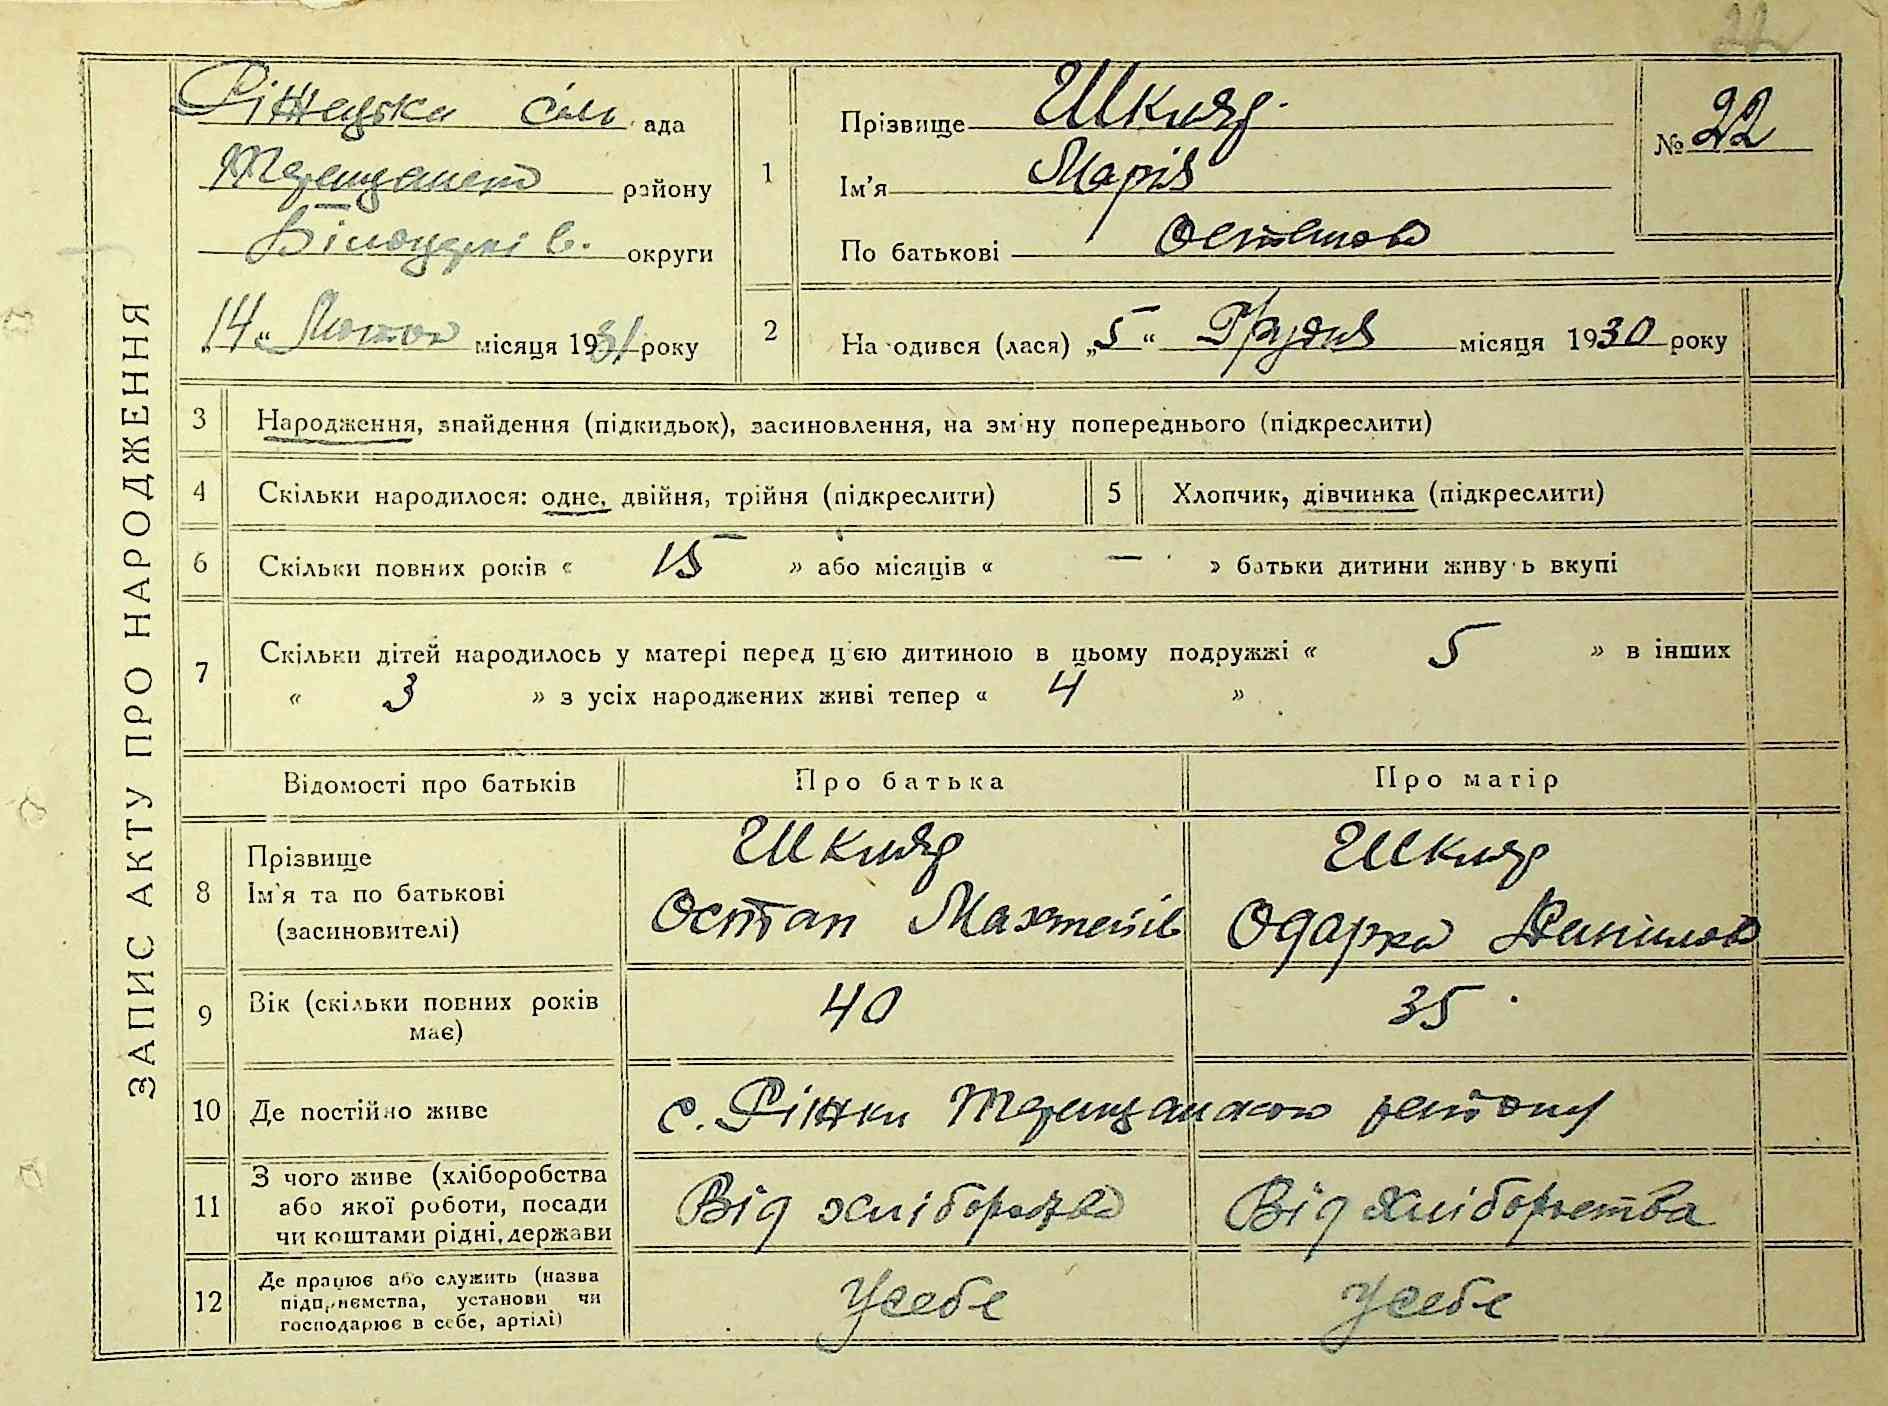 22
ЗАПИС АКТУ ПРО НАРОДЖЕННЯ
Ріжецька сіль ада
району
Білоцерків. округи
„14“ Лютого місяця 1931 року
1
Прізвище Шкляр
Ім'я Марія
По батькові Остапова
№ 22
2
На одився (лася) „5“ Грудня місяця 1930 року
3 Народження, знайдення (підкидьок), засиновлення, на зміну попереднього (підкреслити)
4 Скільки народилося: одне, двійня, трійня (підкреслити)
5 Хлопчик, дівчинка (підкреслити)
6 Скільки повних років « 15 » або місяців « — » батьки дитини живуть вкупі
7 Скільки дітей народилось у матері перед цією дитиною в цьому подружжі « 5 » в інших
« 3 » з усіх народжених живі тепер « 4 »
Відомості про батьків Про батька Про матір
8 Прізвище
Ім'я та по батькові
(засиновителі)
Шкляр
Остап
Шкляр
Одарка Данилова
9 Вік (скільки повних років
має)
40 35
10 Де постійно живе с. Ріжки району
11 З чого живе (хліборобства
або якої роботи, посади
чи коштами рідні, держави
Від Від хліборобства
12 Де працює або служить (назва
підприємства, установи чи
господарює в себе, артілі)
У себе У себе